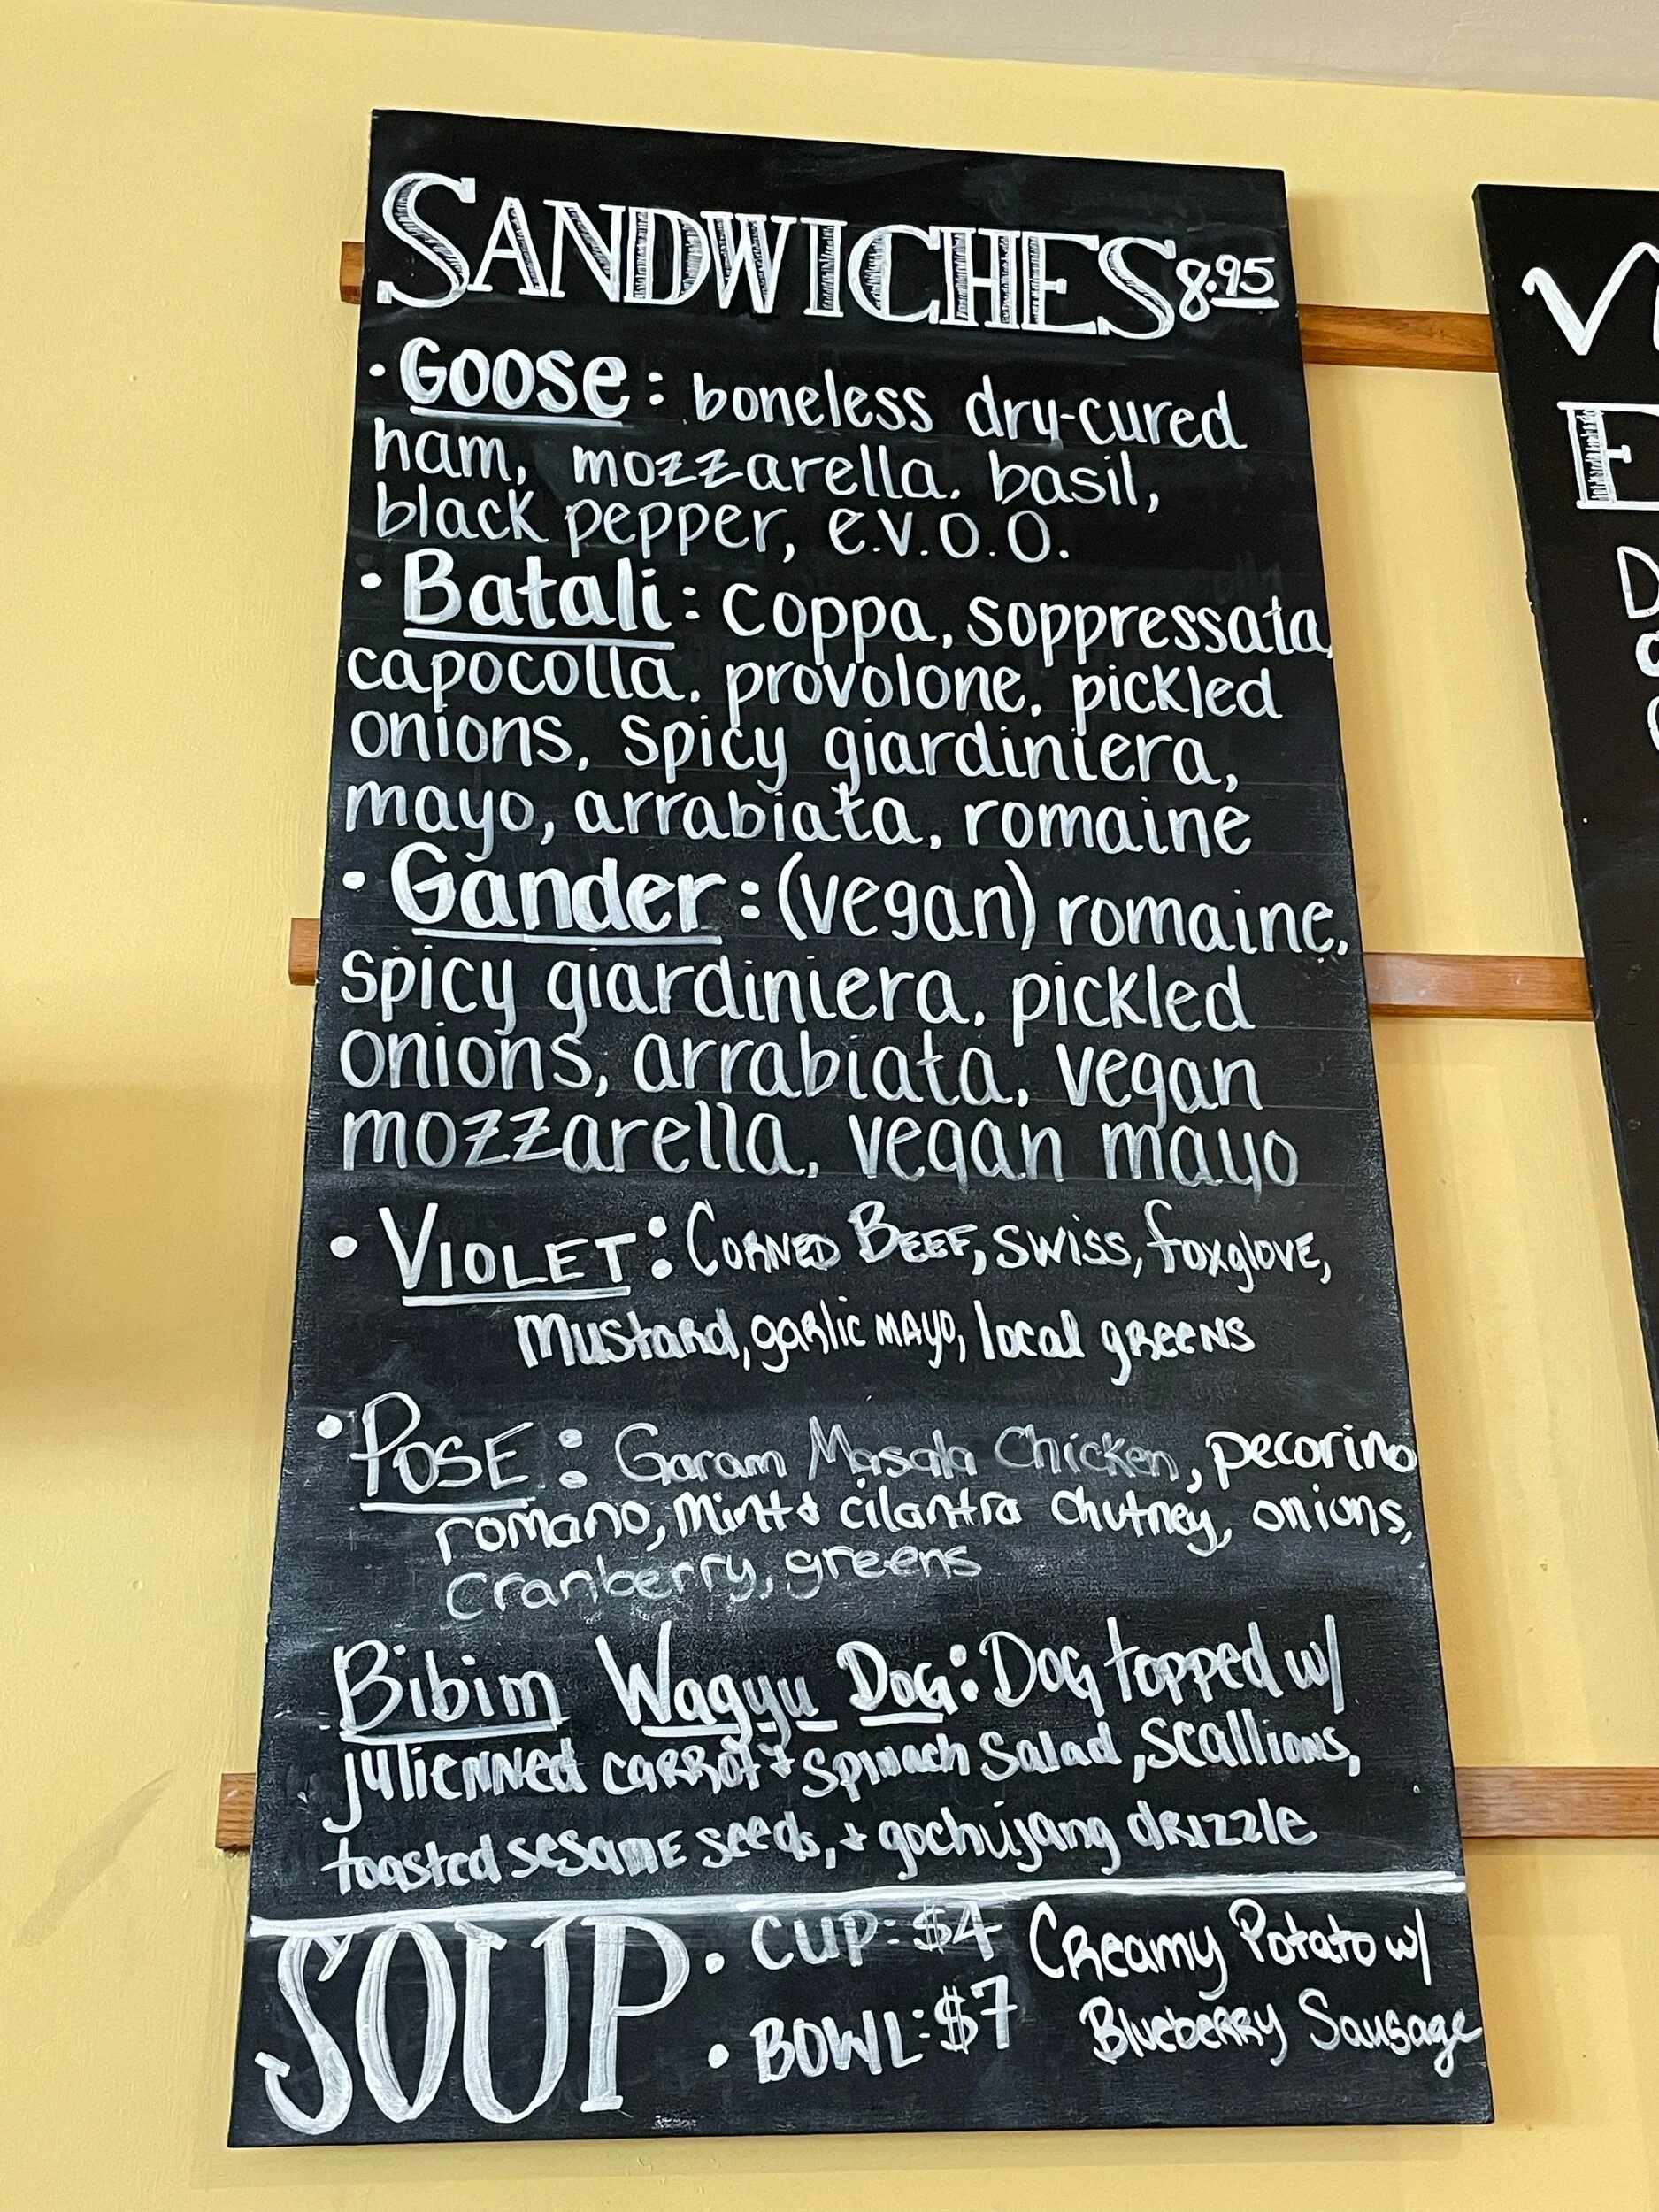 SANDWICHES 8.95
• Goose: boneless dry-cured
ham, mozzarella, basil,
black pepper, e.v.o.o.
• Batali: coppa, soppressata,
capocolla, provolone, pickled
onions, spicy giardiniera,
mayo, arrabiata, romaine
• Gander: (vegan) romaine,
spicy giardiniera, pickled
onions, arrabiata, vegan
mozzarella, vegan mayo
• VIOLET: CORNED BEEF, SWISS, foxglove,
mustard, garlic mayo, local greens
• POSE: Garam Masala Chicken, pecorino
romano, mint & cilantro chutney, onions,
cranberry, greens
Bibim Wagyu Dog: Dog topped w/
julienned carrot + spinach salad, scallions,
toasted sesame seeds, + gochujang drizzle
SOUP • CUP: $4 Creamy Potato w/
• BOWL: $7 Blueberry Sausage